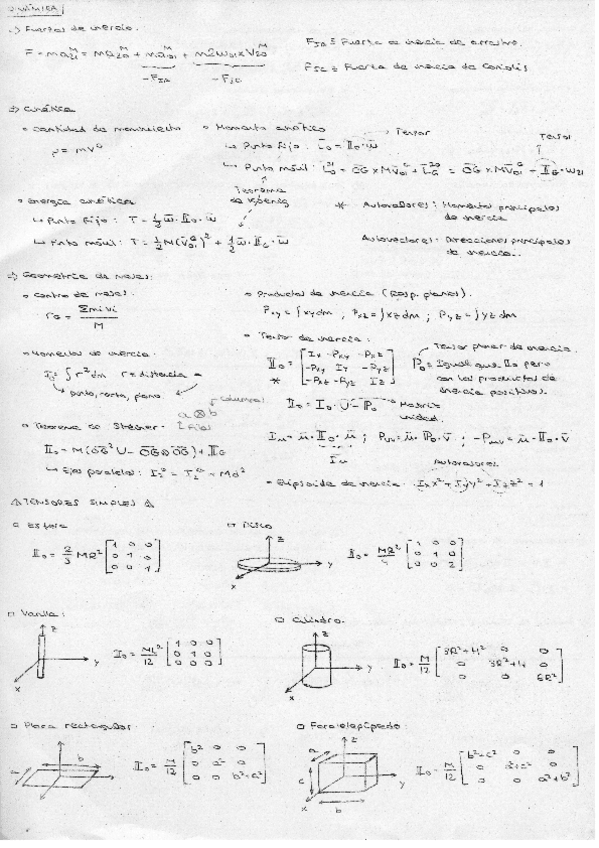 DINÁMICA
·) Fuerzas de inercia.
F = ma₂₁ᴹ = ma₂₀ᴹ + ma₀₁ᴹ + m2ω₀₁×V₂₀ᴹ
-F_IA -F_IC
F_IA ≡ Fuerza de inercia de arrastre.
F_IC ≡ Fuerza de inercia de Coriolis
·) Cinética
• Cantidad de movimiento
p = mv
• Momento cinético
Tensor
↳ Punto fijo: L₀ = II₀·ω
Tensor
↳ Punto móvil: L₀²¹ = OG × MV₀₁ᴳ + L_G²⁰ = OG × MV₀₁ᴳ - II_G·ω₂₁
Teorema de Koenig
• Energía cinética
↳ Punto fijo: T = 1/2 ω·II₀·ω
↳ Punto móvil: T = 1/2 M(V₀₁ᴳ)² + 1/2 ω·II_G·ω
* Autovalores: Momentos principales de inercia
Autovectores: Direcciones principales de inercia..
·) Geometría de masas:
• Centro de masas:
r_G = Σmivi / M
• Productos de inercia (Resp. planos).
P_xy = ∫xydm, P_xz = ∫xzdm; P_yz = ∫yzdm
• Momentos de inercia:
I₀ = ∫r²dm r = distancia a
punto, recta, plano.
• Tensor de inercia:
* II₀ = [Ix -Pxy -Pxz; -Pxy Iy -Pyz; -Pxz -Pyz Iz]
Tensor planar de inercia.
P₀ = Igual que II₀ pero con los productos de inercia positivos.
II₀ = I₀·U - P₀
Matriz unidad.
• Teorema de Steiner:
a⊗b
Columnas
Filas
II₀ = M(OG²U - OG⊗OG) + II_G
↳ Ejes paralelos:
I_u = u·II₀·u; P_uv = u·P₀·v; -P_uv = u·II₀·v
Autovalores
• Elipsoide de inercia: Ixx² + Iyy² + Izz² = 1
TENSORES SIMPLES
□ Esfera
II₀ = 2/3 MR² [1 0 0; 0 1 0; 0 0 1]
□ Disco
z
y
x
II₀ = MR²/4 [1 0 0; 0 1 0; 0 0 2]
□ Varilla:
z
y
x
II₀ = ML²/12 [1 0 0; 0 1 0; 0 0 0]
□ Cilindro.
z
y
x
II₀ = M/12 [3R²+H² 0 0; 0 3R²+H 0; 0 0 6R²]
□ Placa rectangular
b
y
x
II₀ = M/12 [b² 0 0; 0 a² 0; 0 0 b²+a²]
□ Paralelepípedo:
z
a
c
b
x
y
II₀ = M/12 [b²+c² 0 0; 0 a²+c² 0; 0 0 a²+b²]